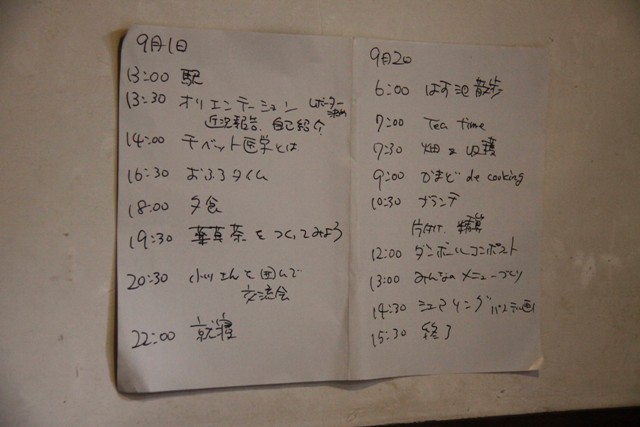 9月1日
13:00 駅
13:30 オリエンテーション レポーター決め
近況報告、自己紹介
14:00 チベット医学とは
16:30 おふろタイム
18:00 夕食
19:30 薬草茶をつくってみよう
20:30 小川さんを囲んで
交流会
22:00 就寝
9月2日
6:00 はす池散歩
7:00 Tea time
7:30 畑 収穫
9:00 かまど de cooking
10:30 ブランチ
片付け、
12:00 ダンボールコンポスト
13:00 みんなのメニューづくり
14:30 シェアリング
15:30 終了